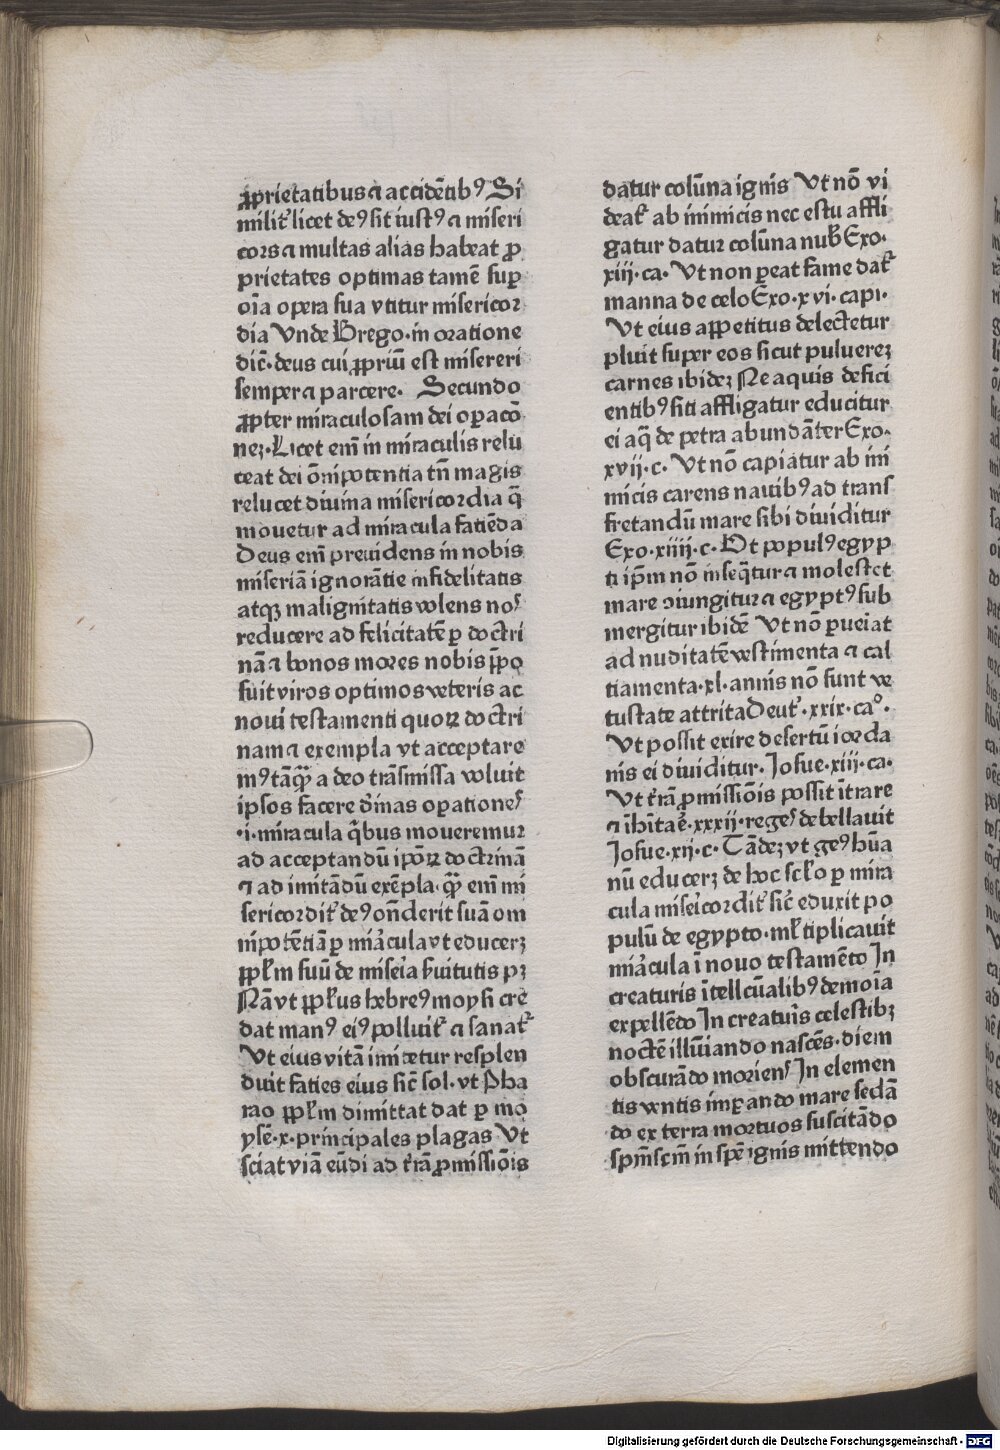 ꝓprietatibus ⁊ accidētibꝰ Si
milit᷑ licet deꝰ sit iustꝰ ⁊ miseri
cors ⁊ multas alias habeat ꝓ
prietates optimas tamē suꝑ
oīa opera sua vtitur misericor
dia Vnde Grego·in oratione
dic̄·deus cui ꝓpriū est misereri
semper ⁊ parcere· Secundo
ꝓpter miraculosam dei oꝑacō
neꝫ·Licet em̄ in miraculis relu
ceat dei ōnipotentia tn̄ magis
relucet diuina misericordia q̄
mouetur ad miracula faciēda
Deus em̄ preuidens in nobis
miseriā ignorātie infidelitatis
atqꝫ malignitatis volens nos
reducere ad felicitatē ꝑ doctri
nā ⁊ bonos mores nobis ꝓpo
suit viros optimos veteris ac
noui testamenti quoꝝ doctri
nam ⁊ exempla vt acceptare
mꝰ tāq̄ꝫ a deo trāsmissa voluit
ipsos facere diuinas oꝑationes
·i·miracula q̄bus moueremur
ad acceptandū ipōꝝ doctrinā
⁊ ad imitādū exēpla·q̄ꝫ em̄ mi
sericordit᷑ deꝰ ōnderit suā om
nipotētiā ꝑ miꝛacula vt educerꝫ
ppl̄m suū de miseria s̄uitutis pꝫ
Nā vt ppl̄us hebreꝰ moysi cre
dat manꝰ eiꝰ polluit᷑ ⁊ sanat᷑
Vt eius vitā imitetur resplen
duit facies eius sic̄ sol·vt Pha
rao ppl̄m dimittat dat ꝑ mo
ysē·x·principales plagas Vt
sciat viā eūdi ad t̄rā ꝓmissiōis
datur colūna ignis Vt nō vi
deat᷑ ab inimicis nec estu affli
gatur datur colūna nub̄ Exo·
xiij·ca· Vt non ꝑeat fame dat᷑
manna de celo Exo·xvi·capi·
Vt eius appetitus delectetur
pluit super eos sicut puluereꝫ
carnes ibideꝫ Ne aquis defici
entibꝰ siti affligatur educitur
ei aq̄ de petra abundāter Exo·
xvij·c· Vt nō capiatur ab ini
micis carens nauibꝰ ad trans
fretandū mare sibi diuiditur
Exo·xiiij·c· Vt populꝰ egyp
ti ip̄m nō inseq̄tur ⁊ molestet
mare ↄiungitur ⁊ egyptꝰ sub
mergitur ibidē Vt nō ꝑueiat
ad nuditatē vestimenta ⁊ cal
tiamenta·xl·annis nō sunt ve
tustate attrita Deut᷑·xxix·caᵒ·
Vt possit exire desertū iorda
nis ei diuiditur·Josue·xiij·ca·
Vt t̄rā ꝓmissiōis possit ītrare
⁊ īhītaē·xxxij·reges debellauit
Josue·xij·c· Tādeꝫ vt geꝰ hūa
nū educerꝫ de hoc scl̄o ꝑ mira
cula misericordit᷑ sic̄ eduxit po
pulū de egypto·ml̄tiplicauit
miꝛacula ī nouo testamēto In
creaturis ītellcūalibꝰ demoīa
expellēdo In creaturis celestibꝫ
noctē illūiando nascēs·diem
obscurādo moriens In elemen
tis ventis imꝑando mare sedā
do ex terra mortuos suscitādo
spm̄scm̄ in spē ignis mittendo
Digitalisierung gefördert durch die Deutsche Forschungsgemeinschaft · DFG